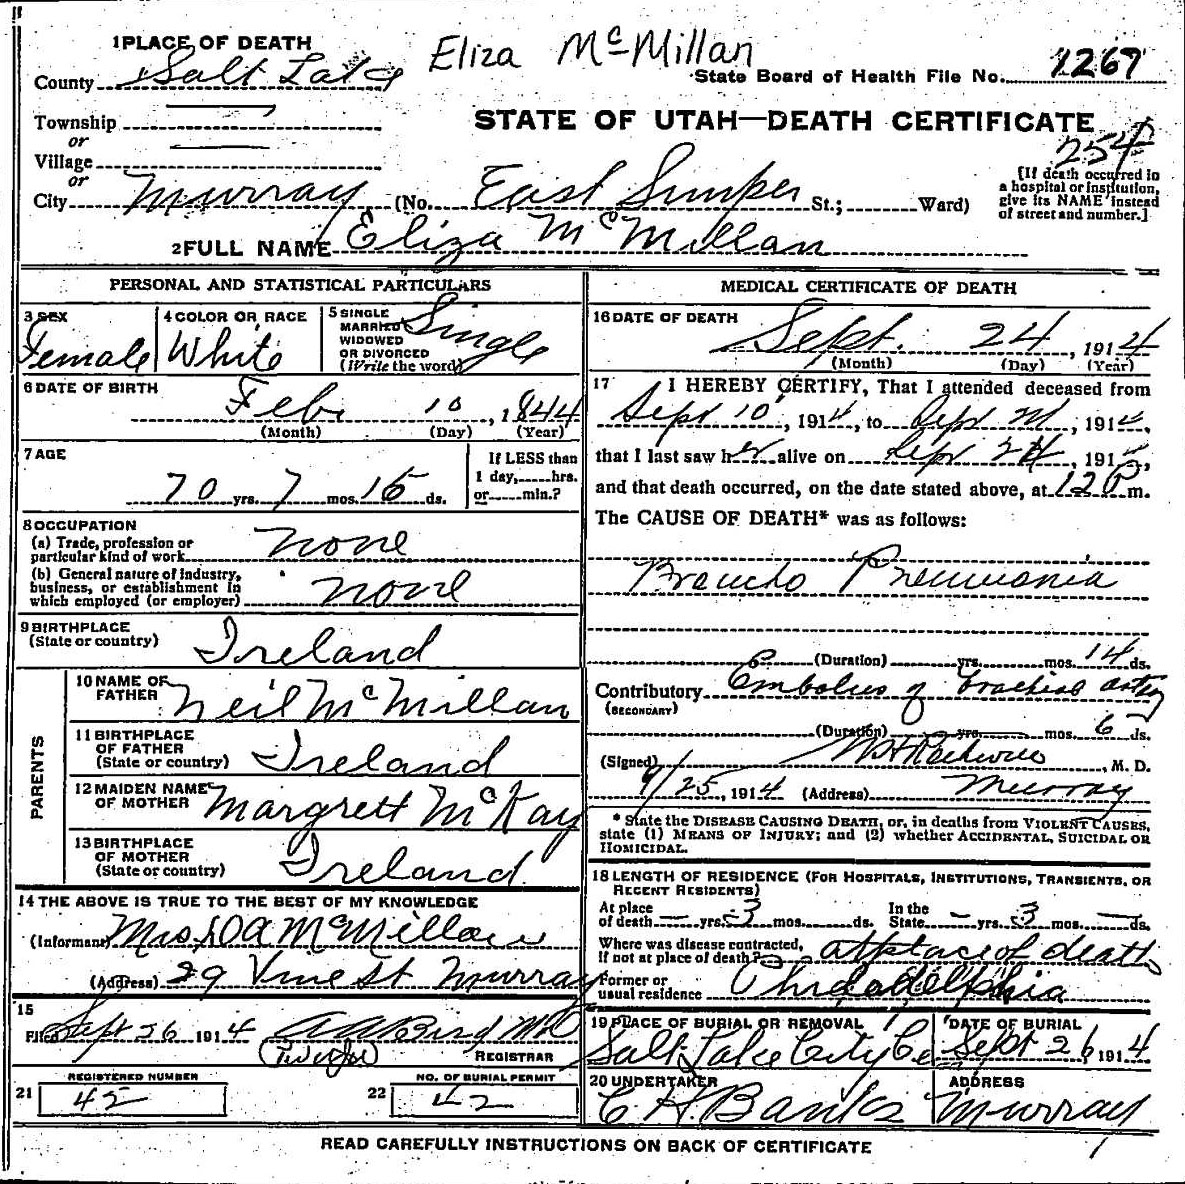 Eliza McMillan
1 PLACE OF DEATH
County Salt Lake
State Board of Health File No. 1267
Township
or
STATE OF UTAH—DEATH CERTIFICATE
254
Village
or
City Murray (No. East St.; Ward)
[If death occurred in
a hospital or institution,
give its NAME instead
of street and number.]
2 FULL NAME Eliza McMillan
PERSONAL AND STATISTICAL PARTICULARS
3 SEX
Female
4 COLOR OR RACE
White
5 SINGLE
MARRIED
WIDOWED
OR DIVORCED
(Write the word)
Single
6 DATE OF BIRTH
Feb 10, 1844
(Month) (Day) (Year)
7 AGE
70 yrs. 7 mos. 15 ds.
If LESS than
1 day, hrs.
or min.?
8 OCCUPATION
(a) Trade, profession or
particular kind of work none
(b) General nature of industry,
business, or establishment in
which employed (or employer) none
9 BIRTHPLACE
(State or country) Ireland
PARENTS
10 NAME OF
FATHER Neil McMillan
11 BIRTHPLACE
OF FATHER
(State or country) Ireland
12 MAIDEN NAME
OF MOTHER Margrett McKay
13 BIRTHPLACE
OF MOTHER
(State or country) Ireland
14 THE ABOVE IS TRUE TO THE BEST OF MY KNOWLEDGE
(Informant) Mrs D A McMillan
(Address) 29 Vine St Murray
15
Filed Sept 26 1914
REGISTRAR
REGISTERED NUMBER
21 42
NO. OF BURIAL PERMIT
22 42
MEDICAL CERTIFICATE OF DEATH
16 DATE OF DEATH
Sept. 24, 1914
(Month) (Day) (Year)
17 I HEREBY CERTIFY, That I attended deceased from
Sept 10, 1914, to Sept 24, 1914,
that I last saw her alive on Sept 24, 191
and that death occurred, on the date stated above, at 12 P m.
The CAUSE OF DEATH* was as follows:
Broncho Pneumonia
(Duration) yrs. mos. 14 ds.
Contributory Embolus of brachial artery
(SECONDARY)
(Duration) yrs. mos. 6 ds.
(Signed) M. D.
9/25, 1914 (Address) Murray
* State the DISEASE CAUSING DEATH, or, in deaths from VIOLENT CAUSES,
state (1) MEANS OF INJURY; and (2) whether ACCIDENTAL, SUICIDAL OR
HOMICIDAL.
18 LENGTH OF RESIDENCE (FOR HOSPITALS, INSTITUTIONS, TRANSIENTS, OR
RECENT RESIDENTS)
At place
of death — yrs. 3 mos. ds.
In the
State — yrs. 3 mos. — ds.
Where was disease contracted,
if not at place of death? at place of death
Former or
usual residence Philadelphia
19 PLACE OF BURIAL OR REMOVAL
Salt Lake City Ce
DATE OF BURIAL
Sept 26 1914
20 UNDERTAKER
C H. Banks
ADDRESS
Murray
READ CAREFULLY INSTRUCTIONS ON BACK OF CERTIFICATE